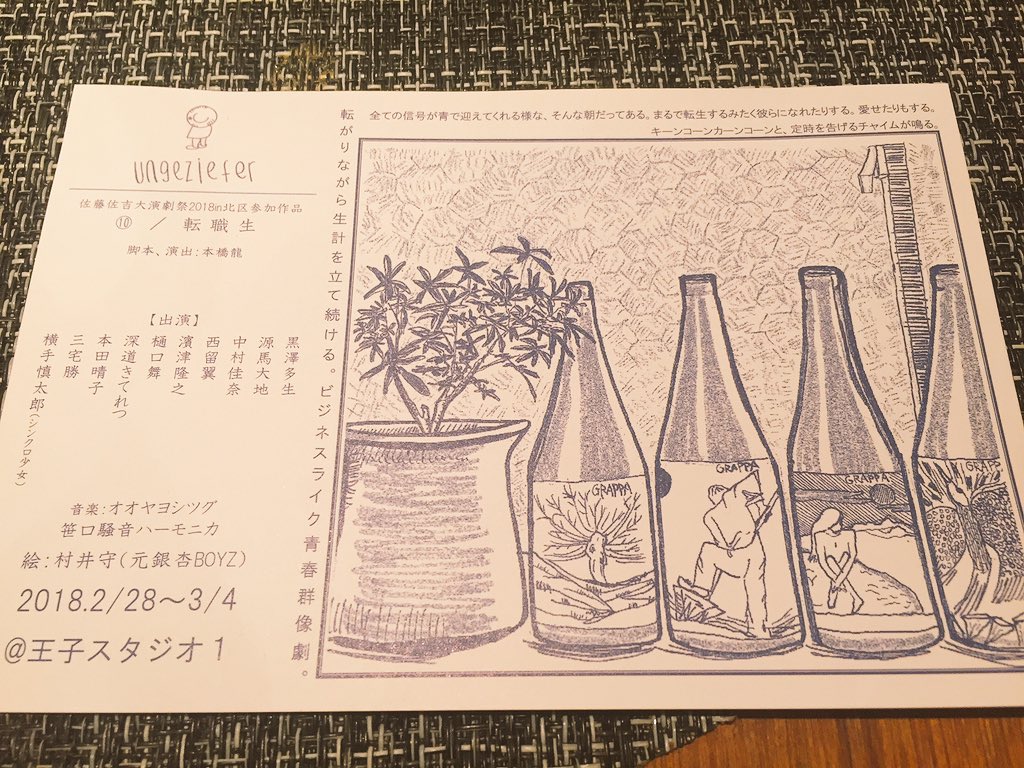 ungeziefer
佐藤佐吉大演劇祭2018in北区参加作品
⑩ / 転職生
脚本、演出:本橋龍
【出演】
黒澤多生
源馬大地
中村佳奈
西留翼
濱津隆之
樋口舞
深道きてれつ
本田晴子
三宅勝
横手慎太郎(シンクロ少女)
音楽:オオヤヨシツグ
笹口騒音ハーモニカ
絵:村井守(元銀杏BOYZ)
2018.2/28~3/4
@王子スタジオ1
転がりながら生計を立て続ける。ビジネスライク青春群像劇。
全ての信号が青で迎えてくれる様な、そんな朝だってある。まるで転生するみたく彼らになれたりする。愛せたりもする。
キーンコーンカーンコーンと、定時を告げるチャイムが鳴る。
GRAPPA
GRAPPA
GRAPPA
GRAPP